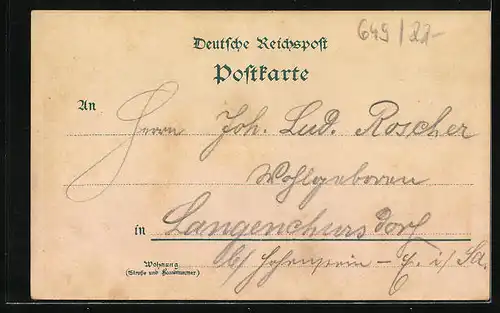 649/22-
Deutsche Reichspost
Postkarte
An
Herrn Joh. Lud. Roscher
Wohlgeboren
in Langenchursdorf
b/ Hohenstein - E. i/ Sa.
Wohnung
(Straße und Hausnummer)